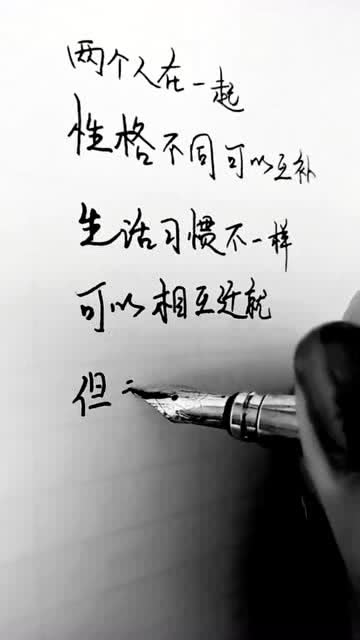 两个人在一起
性格不同可以互补
生活习惯不一样
可以相互迁就
但